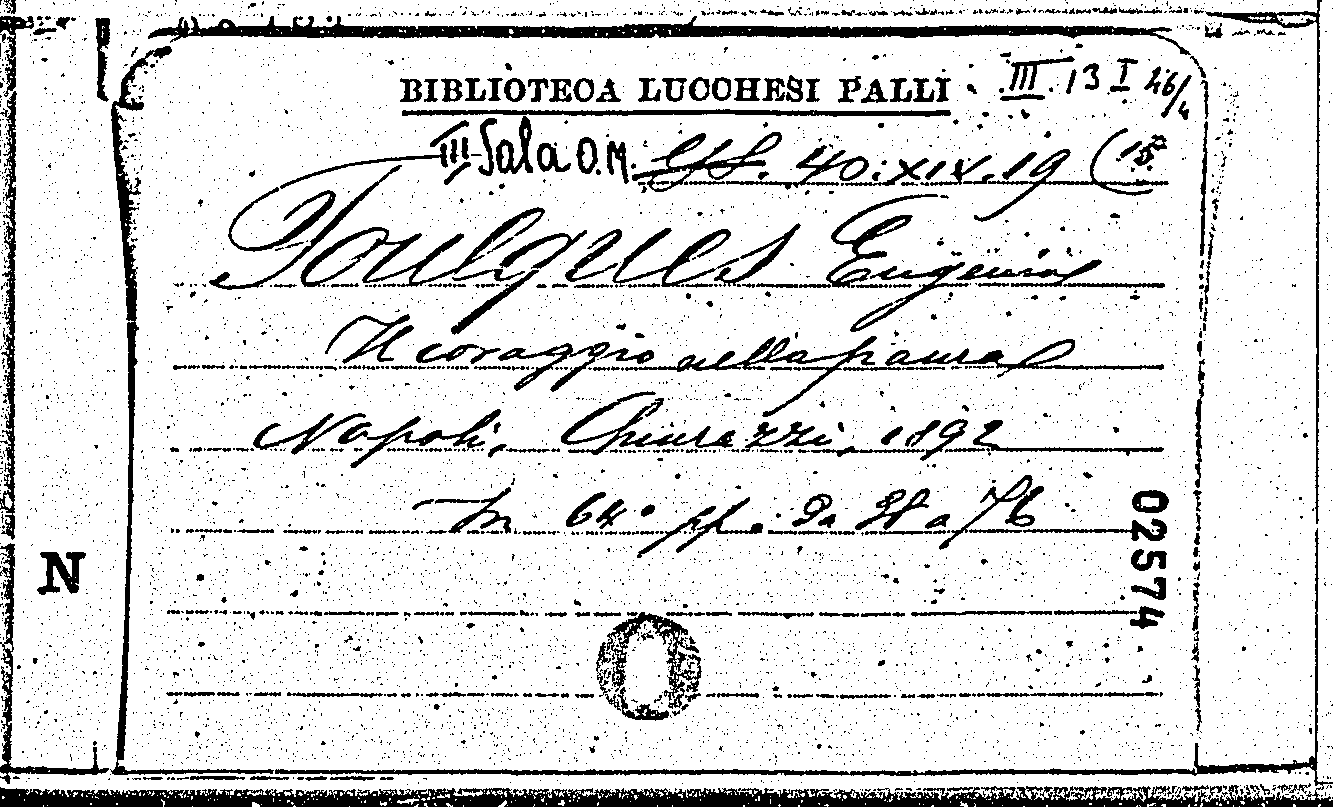 BIBLIOTECA LUCCHESI PALLI
III. 13 I 26/4
III Sala O.M. 40.XIV.19 (15
Foulques Eugenio
Il coraggio nella paura
Napoli, Chiurazzi, 1892
In 64° pp. Da 38 a 76
N
025774